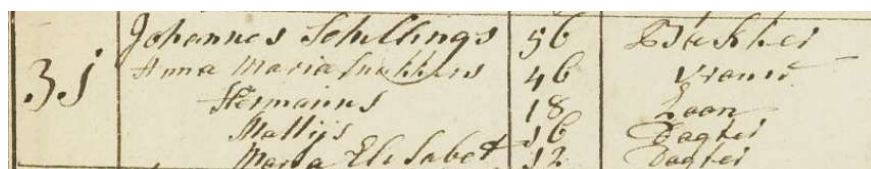 Johannes Schillings 56 Bakker
31 Anna Maria 46 Vrouw
Hermanus 18 Zoon
Mattijs 16 Dogter
Maria Elisabet 12 Dogter